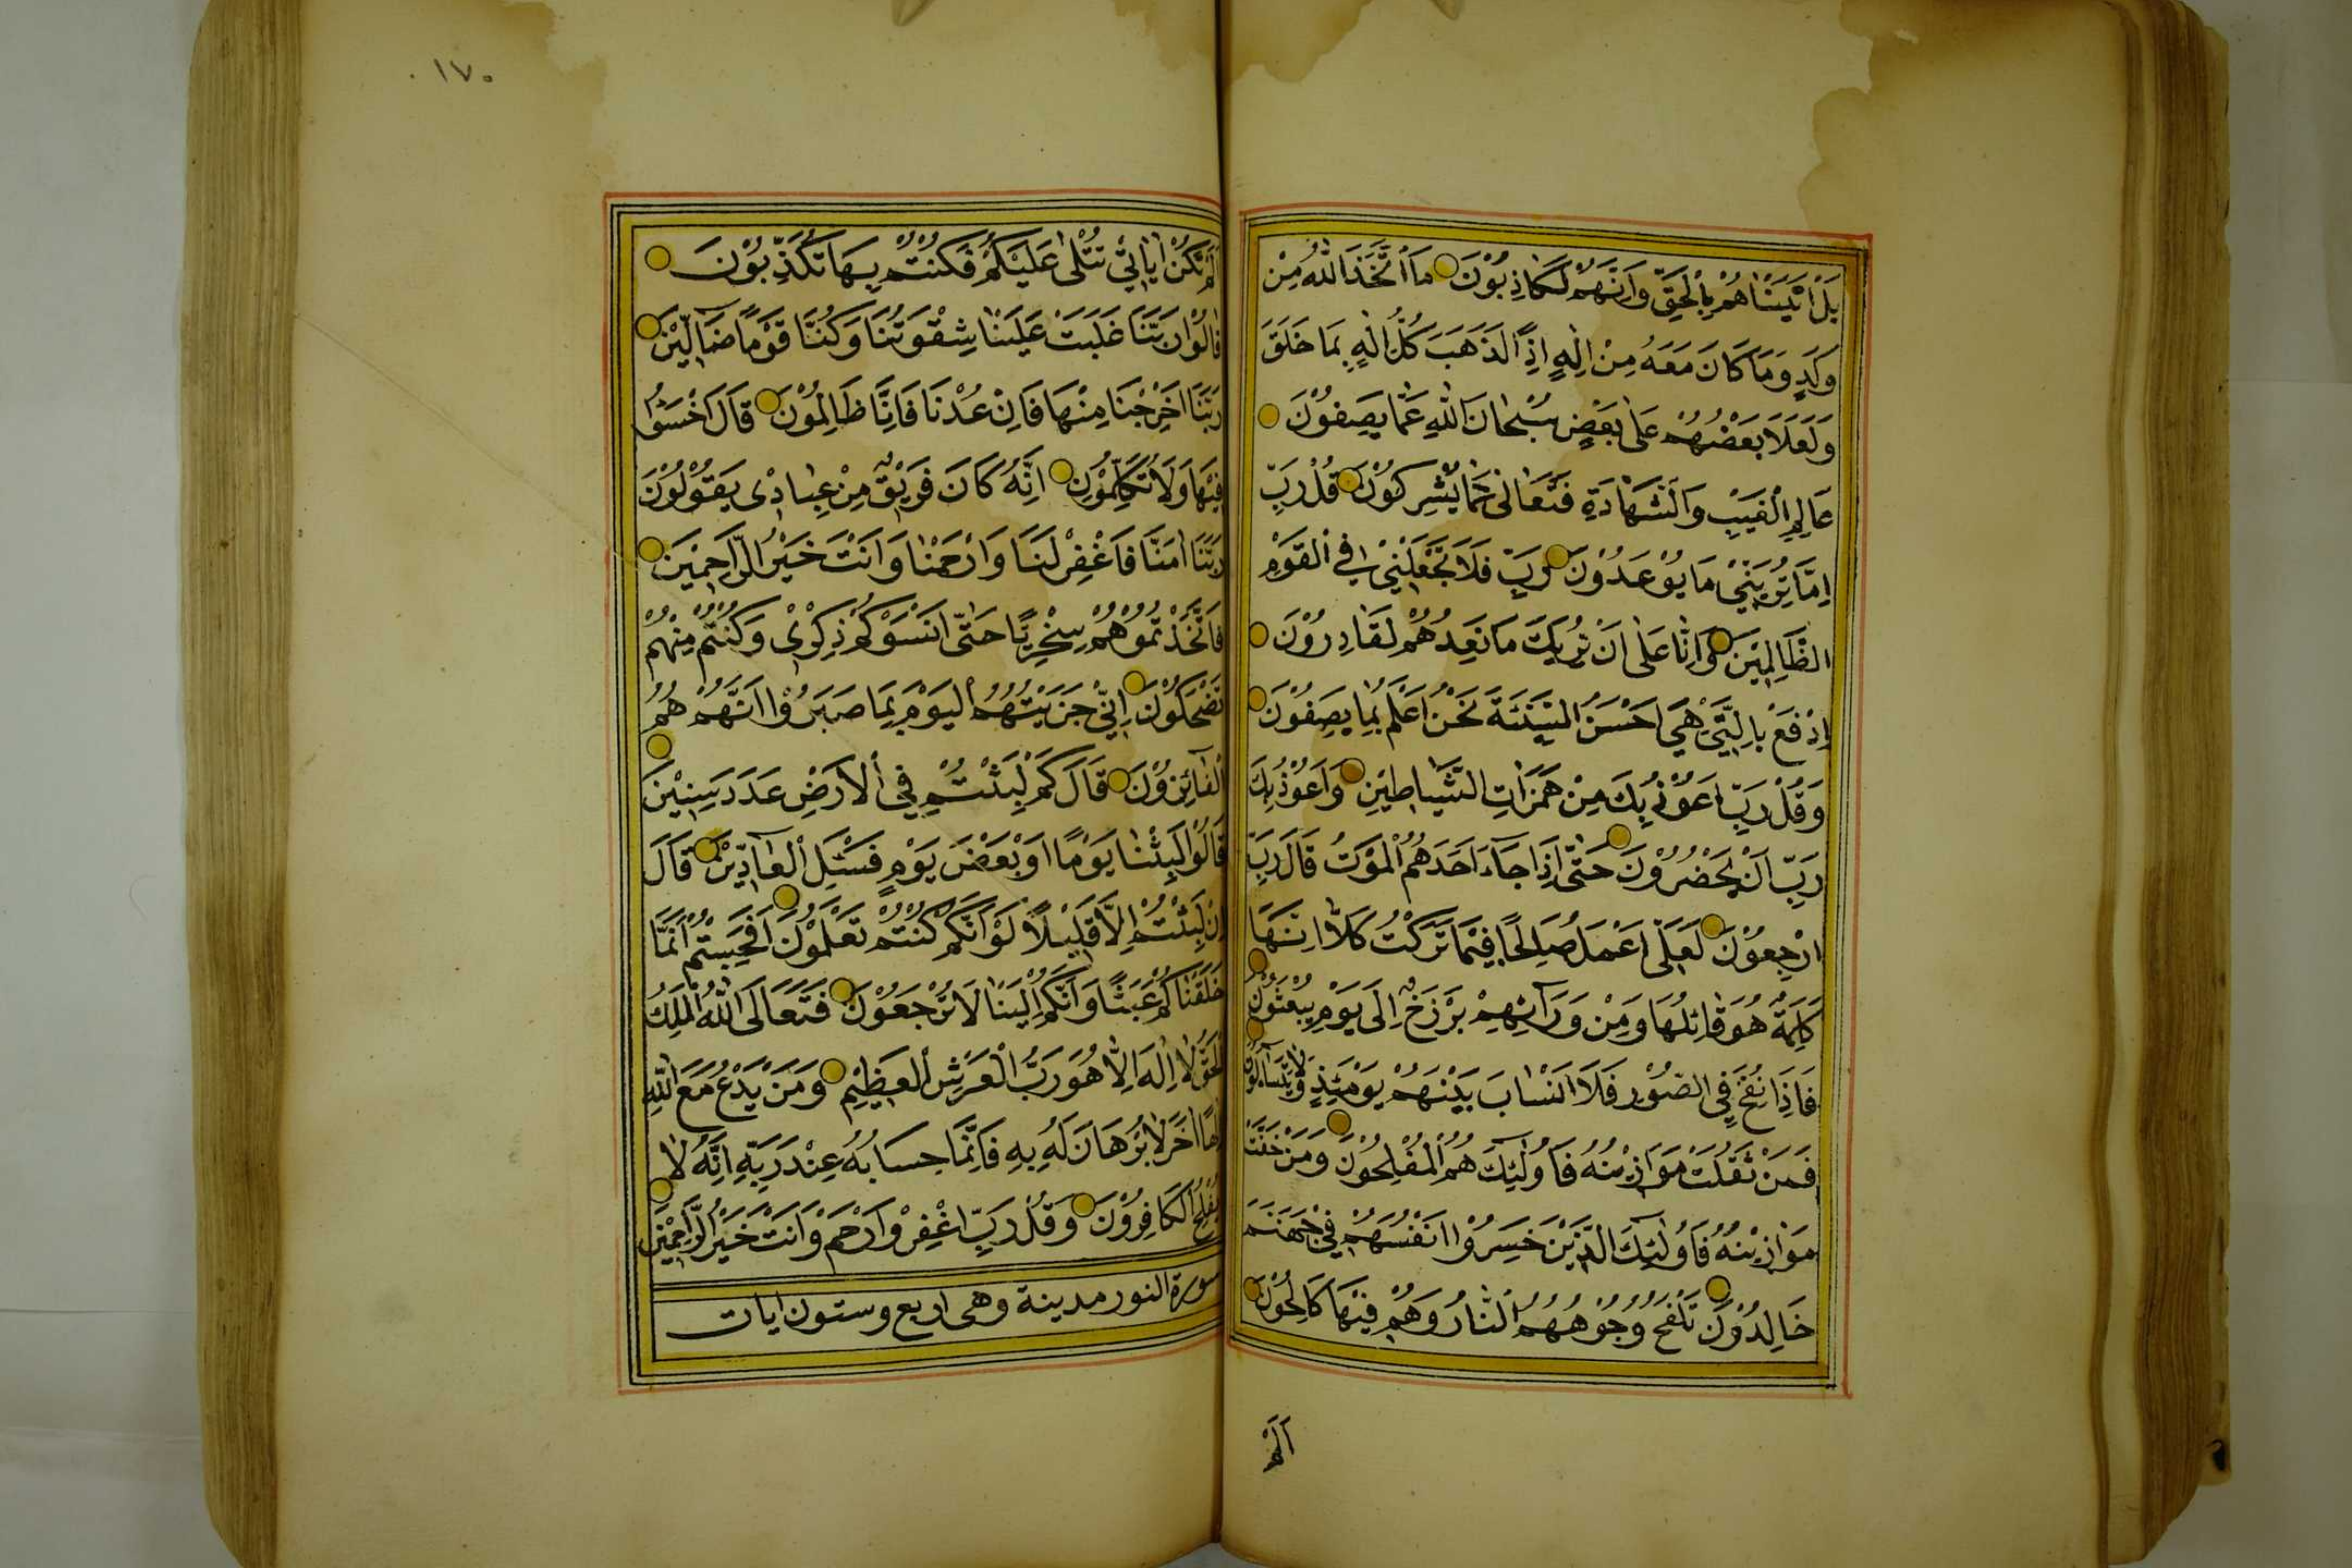 بَلْ اَتَيْنَاهُمْ بِالْحَقِّ وَاِنَّهُمْ لَكَاذِبُوْنَ مَا اتَّخَذَ اللّٰهُ مِنْ
وَلَدٍ وَمَا كَانَ مَعَهُ مِنْ اِلٰهٍ اِذًا لَذَهَبَ كُلُّ اِلٰهٍ بِمَا خَلَقَ
وَلَعَلَا بَعْضُهُمْ عَلٰى بَعْضٍ سُبْحَانَ اللّٰهِ عَمَّا يَصِفُوْنَ
عَالِمِ الْغَيْبِ وَالشَّهَادَةِ فَتَعَالٰى عَمَّا يُشْرِكُوْنَ قُلْ رَبِّ
اِمَّا تُرِيَنِّيْ مَا يُوْعَدُوْنَ رَبِّ فَلَا تَجْعَلْنِيْ فِي الْقَوْمِ
الظَّالِمِيْنَ وَاِنَّا عَلٰى اَنْ نُرِيَكَ مَا نَعِدُهُمْ لَقَادِرُوْنَ
اِدْفَعْ بِالَّتِيْ هِيَ اَحْسَنُ السَّيِّئَةَ نَحْنُ اَعْلَمُ بِمَا يَصِفُوْنَ
وَقُلْ رَبِّ اَعُوْذُ بِكَ مِنْ هَمَزَاتِ الشَّيَاطِيْنِ وَاَعُوْذُ بِكَ
رَبِّ اَنْ يَحْضُرُوْنَ حَتّٰى اِذَا جَآءَ اَحَدَهُمُ الْمَوْتُ قَالَ رَبِّ
ارْجِعُوْنَ لَعَلِّى اَعْمَلُ صَالِحًا فِيْمَا تَرَكْتُ كَلَّا اِنَّهَا
كَلِمَةٌ هُوَ قَائِلُهَا وَمِنْ وَرَآئِهِمْ بَرْزَخٌ اِلَى يَوْمِ يُبْعَثُوْنَ
فَاِذَا نُفِخَ فِي الصُّوْرِ فَلَا اَنْسَابَ بَيْنَهُمْ يَوْمَئِذٍ وَلَا يَتَسَآءَلُوْنَ
فَمَنْ ثَقُلَتْ مَوَازِيْنُهُ فَاُولٰئِكَ هُمُ الْمُفْلِحُوْنَ وَمَنْ خَفَّتْ
مَوَازِيْنُهُ فَاُولٰئِكَ الَّذِيْنَ خَسِرُوْا اَنْفُسَهُمْ فِيْ جَهَنَّمَ
خَالِدُوْنَ تَلْفَحُ وُجُوْهَهُمُ النَّارُ وَهُمْ فِيْهَا كَالِحُوْنَ
اَلَمْ
١٧٠
اَلَمْ تَكُنْ اٰيَاتِيْ تُتْلٰى عَلَيْكُمْ فَكُنْتُمْ بِهَا تُكَذِّبُوْنَ
قَالُوْا رَبَّنَا غَلَبَتْ عَلَيْنَا شِقْوَتُنَا وَكُنَّا قَوْمًا ضَآلِّيْنَ
رَبَّنَا اَخْرِجْنَا مِنْهَا فَاِنْ عُدْنَا فَاِنَّا ظَالِمُوْنَ قَالَ اخْسَئُوْا
فِيْهَا وَلَا تُكَلِّمُوْنِ اِنَّهُ كَانَ فَرِيْقٌ مِنْ عِبَادِيْ يَقُوْلُوْنَ
رَبَّنَا اٰمَنَّا فَاغْفِرْ لَنَا وَارْحَمْنَا وَاَنْتَ خَيْرُ الرَّاحِمِيْنَ
فَاتَّخَذْتُمُوْهُمْ سِخْرِيًّا حَتّٰى اَنْسَوْكُمْ ذِكْرِيْ وَكُنْتُمْ مِنْهُمْ
تَضْحَكُوْنَ اِنِّيْ جَزَيْتُهُمُ الْيَوْمَ بِمَا صَبَرُوْا اَنَّهُمْ هُمُ
الْفَائِزُوْنَ قَالَ كَمْ لَبِثْتُمْ فِي الْاَرْضِ عَدَدَ سِنِيْنَ
قَالُوْا لَبِثْنَا يَوْمًا اَوْ بَعْضَ يَوْمٍ فَسْئَلِ الْعَآدِّيْنَ قَالَ
اِنْ لَبِثْتُمْ اِلَّا قَلِيْلًا لَوْ اَنَّكُمْ كُنْتُمْ تَعْلَمُوْنَ اَفَحَسِبْتُمْ اَنَّمَا
خَلَقْنَاكُمْ عَبَثًا وَاَنَّكُمْ اِلَيْنَا لَا تُرْجَعُوْنَ فَتَعَالَى اللّٰهُ الْمَلِكُ
الْحَقُّ لَا اِلٰهَ اِلَّا هُوَ رَبُّ الْعَرْشِ الْعَظِيْمِ وَمَنْ يَدْعُ مَعَ اللّٰهِ
اِلٰهًا اٰخَرَ لَا بُرْهَانَ لَهُ بِهِ فَاِنَّمَا حِسَابُهُ عِنْدَ رَبِّهِ اِنَّهُ لَا
يُفْلِحُ الْكَافِرُوْنَ وَقُلْ رَبِّ اغْفِرْ وَارْحَمْ وَاَنْتَ خَيْرُ الرَّاحِمِيْنَ
سورة النور مدينة وهى اربع وستون ايات